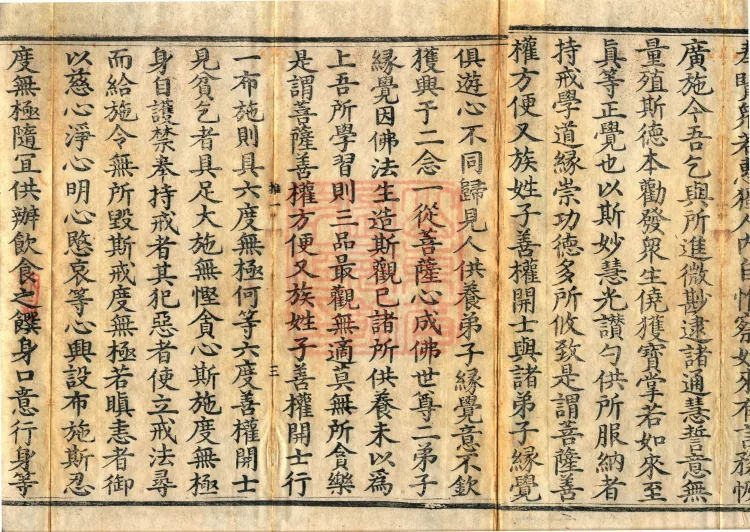 廣施今吾乞與所進微尠逮諸通慧誓意無
量殖斯德本勸發衆生僥獲寶掌若如來至
眞等正覺也以斯妙慧光讃勻供所服納者
持戒學道緣崇功德多所攸致是謂菩薩善
權方便又族姓子善權開士與諸弟子緣覺
俱遊心不同歸見人供養弟子緣覺意不欽
獲興于二念一從菩薩心成佛世尊二弟子
緣覺因佛法生造斯觀已諸所供養未以爲
上吾所學習則三品最觀無適莫無所貪樂
是謂菩薩善權方便又族姓子善權開士行
三
一布施則具六度無極何等六度善權開士
見貧乞者具足大施無慳貪心斯施度無極
身自護禁奉持戒者其犯惡者使立戒法尋
而給施令無所毀斯戒度無極若瞋恚者御
以慈心淨心明心愍哀等心興設布施斯忍
度無極隨宜供辦飲食之饌身口意行身等